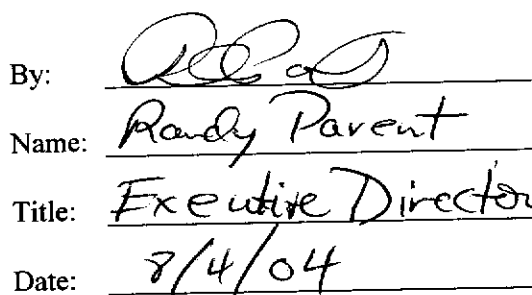 By:
Name: Randy Parent
Title: Executive Director
Date: 8/4/04